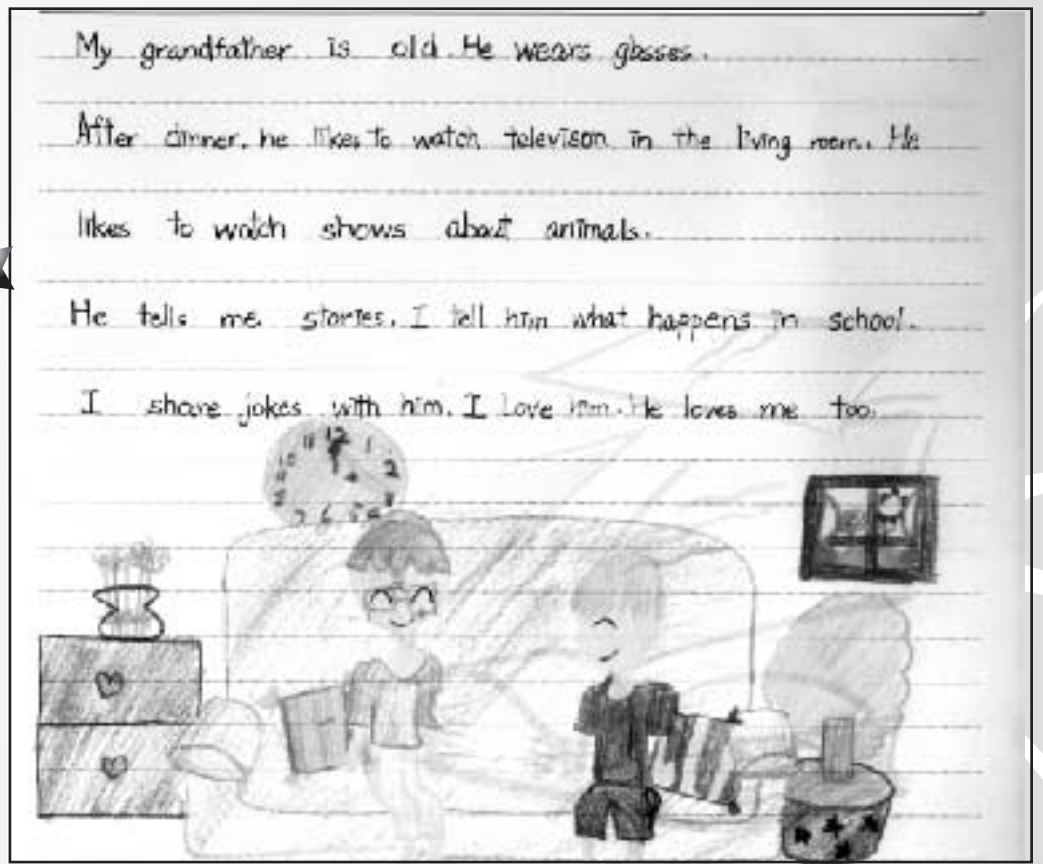 My grandfather is old. He wears glasses.
After dinner, he likes to watch televison in the living room. He
likes to watch shows about animals.
He tells me stories. I tell him what happens in school.
I share jokes with him. I love him. He loves me too.
11 12 1
2
7 6 5